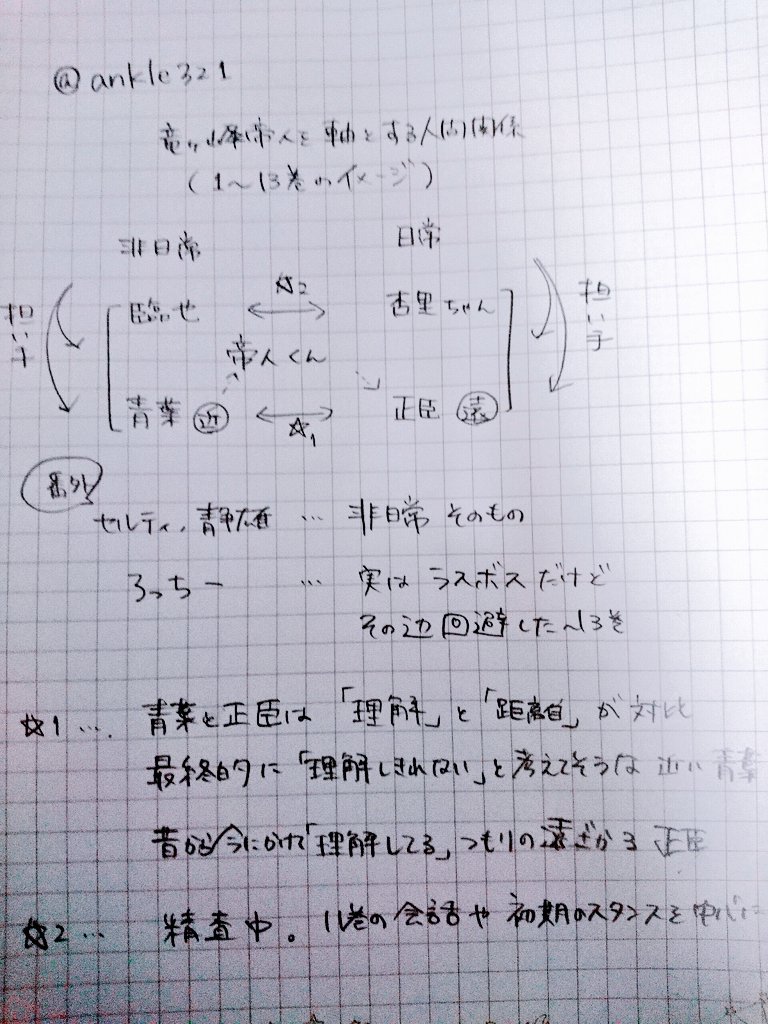 @ankle321
竜ヶ峰帝人を軸とする人間関係
(1〜13巻のイメージ)
非日常 日常
担い子 臨也 ☆2 杏里ちゃん 担い子
帝人くん
青葉 近 ☆1 正臣 遠
番外
セルティ、静雄 … 非日常 そのもの
ろっちー … 実は ラスボス だけど
その辺回避した〜13巻
☆1 … 青葉と正臣は「理解」と「距離」が対比
最終的に「理解しきれない」と考えてそうな 近い 青葉
昔から今にかけて「理解してる」つもりの遠ざかる 正臣
☆2 … 精査中。11巻の会話や初期のスタンスを